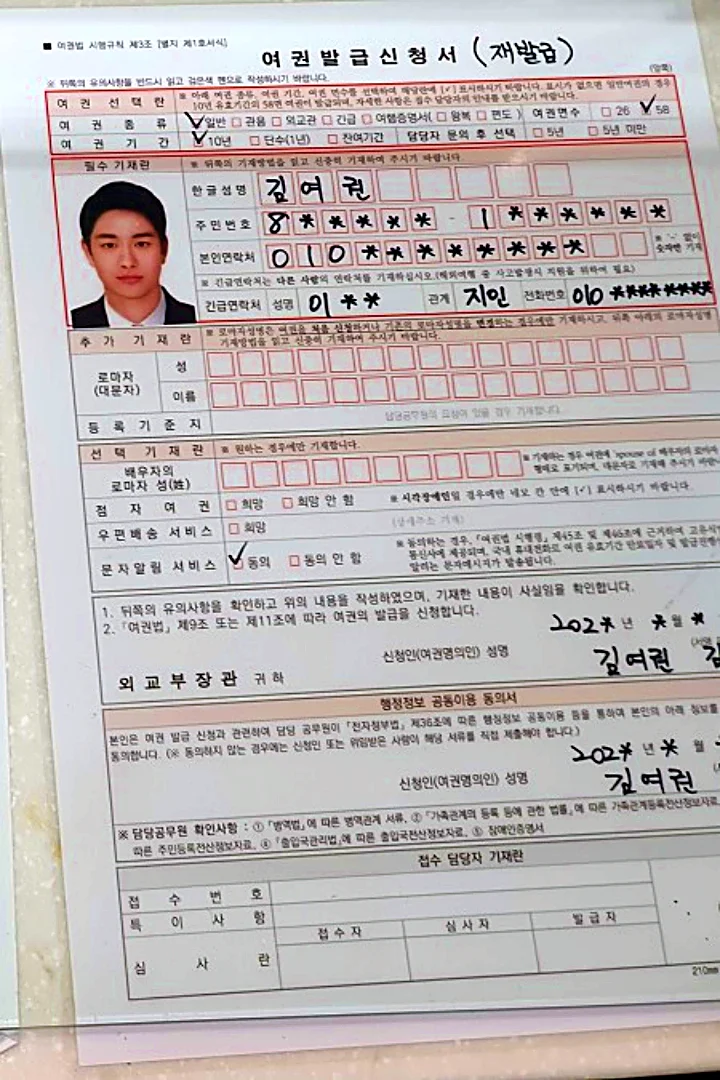 ■ 여권법 시행규칙 제3조 [별지 제1호서식]
여권발급신청서 (재발급)
(앞쪽)
※ 뒤쪽의 유의사항을 반드시 읽고 검은색 펜으로 작성하시기 바랍니다.
여 권 선 택 란 ※ 아래 여권 종류, 여권 기간, 여권 면수를 선택하여 해당란에 [✓] 표시하시기 바랍니다. 표시가 없으면 일반여권의 경우
10년 유효기간의 58면 여권이 발급되며, 자세한 사항은 접수 담당자의 안내를 받으시기 바랍니다.
여 권 종 류 ✓ 일반 □ 관용 □ 외교관 □ 긴급 □ 여행증명서( □ 왕복 □ 편도 ) 여권면수 □ 26 ✓ 58
여 권 기 간 ✓ 10년 □ 단수(1년) □ 잔여기간 담당자 문의 후 선택 □ 5년 □ 5년 미만
필수 기재란 ※ 뒤쪽의 기재방법을 읽고 신중히 기재하여 주시기 바랍니다.
한글성명 김여권
주민번호 8***** - 1******
본인연락처 010******** ※ '-' 없이
숫자만 기재
※ 긴급연락처는 다른 사람의 연락처를 기재하십시오.(해외여행 중 사고발생시 지원을 위하여 필요)
긴급연락처 성명 이** 관계 지인 전화번호 010 ********
추 가 기 재 란 ※ 로마자성명은 여권을 처음 신청하거나 기존의 로마자성명을 변경하는 경우에만 기재하시고, 뒤쪽 아래의 로마자성명
기재방법을 읽고 신중히 기재하여 주시기 바랍니다.
로마자
(대문자)
성
이름
등 록 기 준 지 담당공무원의 요청이 있을 경우 기재합니다.
선 택 기 재 란 ※ 원하는 경우에만 기재합니다.
배우자의
로마자 성(姓)
※ 기재하는 경우 여권에 'spouse of 배우자의 로마자
형태로 표기되며, 대문자로 기재해 주시기 바랍
점 자 여 권 □ 희망 □ 희망 안 함 ※ 시각장애인일 경우에만 네모 칸 안에 [✓] 표시하시기 바랍니다.
우편배송 서비스 □ 희망 (상세주소 기재)
문자알림 서비스 ✓ 동의 □ 동의 안 함
※ 동의하는 경우, 「여권법 시행령」 제45조 및 제46조에 근거하여 고유식
통신사에 제공되며, 국내 휴대전화로 여권 유효기간 만료일자 및 발급진행
알리는 문자메시지가 발송됩니다.
1. 뒤쪽의 유의사항을 확인하고 위의 내용을 작성하였으며, 기재한 내용이 사실임을 확인합니다.
2. 「여권법」 제9조 또는 제11조에 따라 여권의 발급을 신청합니다.
202* 년 * 월 *
신청인(여권명의인) 성명 김여권 김
외 교 부 장 관 귀하
행정정보 공동이용 동의서
본인은 여권 발급 신청과 관련하여 담당 공무원이 「전자정부법」 제36조에 따른 행정정보 공동이용 등을 통하여 본인의 아래 정보를
동의합니다. (※ 동의하지 않는 경우에는 신청인 또는 위임받은 사람이 해당 서류를 직접 제출해야 합니다.)
202* 년 * 월
신청인(여권명의인) 성명 김여권
※ 담당공무원 확인사항 : ① 「병역법」에 따른 병역관계 서류, ② 「가족관계의 등록 등에 관한 법률」에 따른 가족관계등록전산정보자료,
따른 주민등록전산정보자료, ④ 「출입국관리법」에 따른 출입국전산정보자료, ⑤ 장애인증명서
접수 담당자 기재란
접 수 번 호
특 이 사 항
심 사 란 접 수 자 심 사 자 발 급 자
210mm